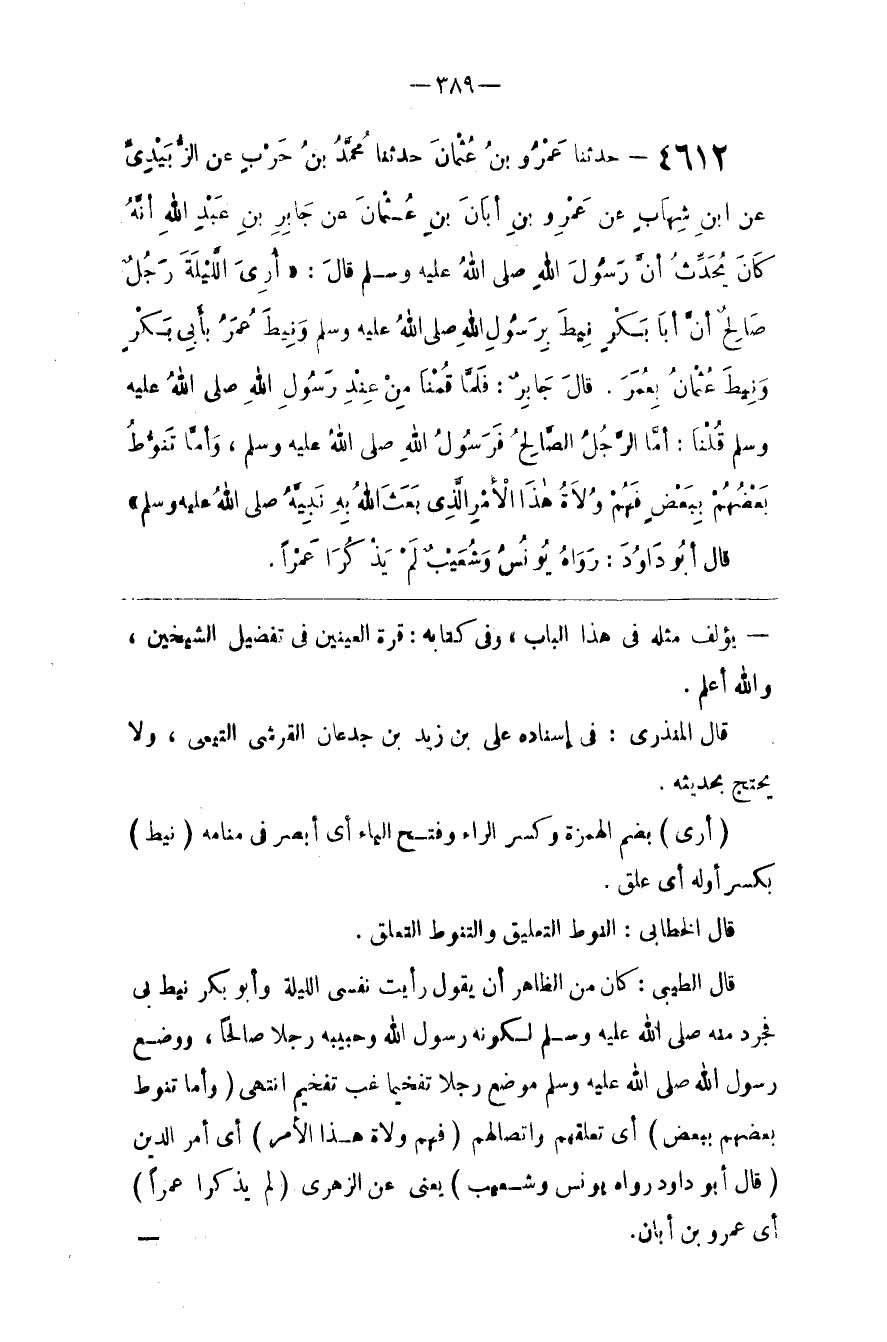 — ٣٨٩ —
٤٦١٢ — حدثنا عَمْرُو بنُ عُثْمَانَ حدثنا مُحمَّدُ بنُ حَرْبٍ عن الزُّبَيْدِىِّ
عن ابنِ شِهَابٍ عن عَمْرِو بنِ أبَانَ بنِ عُثْمَانَ عن جَابِرِ بنِ عَبْدِ اللهِ أنَّهُ
كَانَ يُحَدِّثُ أنَّ رَسُولَ اللهِ صلى اللهُ عليه وسلم قالَ : « أُرِىَ اللَّيْلَةَ رَجُلٌ
صَالِحٌ أنَّ أبَا بَكْرٍ نِيطَ بِرَسُولِ اللهِ صلى اللهُ عليه وسلم وَنِيطَ عُمَرُ بأبي بَكْرٍ
وَنِيطَ عُثْمَانُ بِعُمَرَ . قالَ جَابِرٌ : فَلَمَّا قُمْنَا مِنْ عِنْدِ رَسُولِ اللهِ صلى اللهُ عليه
وسلم قُلْنَا : أمَّا الرَّجُلُ الصَّالِحُ فَرَسُولُ اللهِ صلى اللهُ عليه وسلم ، وَأمَّا تَنَوُّطُ
بَعْضُهُمْ بِبَعْضٍ فَهُمْ وُلاَةُ هٰذَا الْأَمْرِ الَّذِى بَعَثَ اللهُ بِهِ نَبِيَّهُ صلى اللهُ عليه وسلم »
قال أبُو دَاوُدَ : رَوَاهُ يُونُسُ وَشُعَيْبٌ لَمْ يَذْكُرَا عَمْراً .
— يؤلف مثله فى هذا الباب ، وفى كتابه : قرة العينين فى تفضيل الشيخين ،
والله أعلم .
قال المنذرى : فى إسناده على بن زيد بن جدعان القرشى التيمى ، ولا
يحتج بحديثه .
( أرى ) بضم الهمزة وكسر الراء وفتح الياء أى أبصر فى منامه ( نيط )
بكسر أوله أى علق .
قال الخطابى : النوط التعليق والتنوط التعلق .
قال الطيبى : كان من الظاهر أن يقول رأيت نفسى الليلة وأبو بكر نيط بى
فجرد منه صلى الله عليه وسلم لكونه رسول الله وحبيبه رجلا صالحاً ، ووضع
رسول الله صلى الله عليه وسلم موضع رجلا تفخيما غب تفخيم انتهى ( وأما تنوط
بعضهم ببعض ) أى تعلقهم واتصالهم ( فهم ولاة هذا الأمر ) أى أمر الدين
( قال أبو داود رواه يونس وشعيب ) يعنى عن الزهرى ( لم يذكرا عمراً )
أى عمرو بن أبان. —